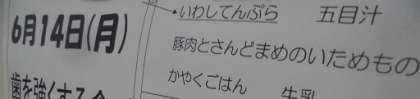 いわしてんぷら 五目汁
6月14日(月)
豚肉とさんどまめのいためもの
かやくごはん 牛乳
歯を強くする